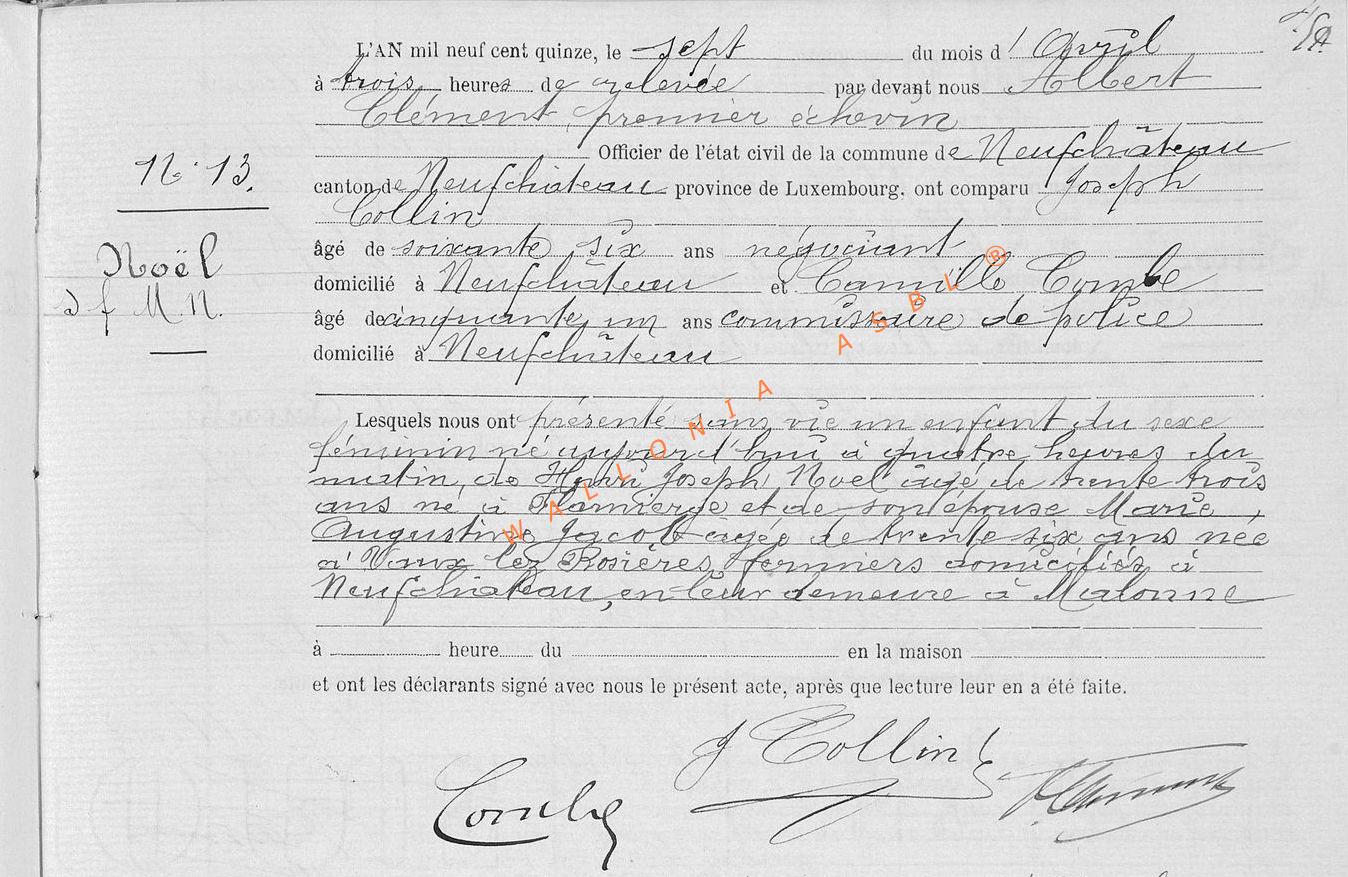 L'AN mil neuf cent quinze, le sept du mois d'Avril
à trois heures de relevée par devant nous Albert
Clément, premier échevin
Officier de l'état civil de la commune de Neufchâteau
N° 13.
canton de Neufchâteau province de Luxembourg, ont comparu Joseph
Collin
âgé de soixante six ans négociant
Noël
domicilié à Neufchâteau et Camille Combe
s f M. N.
âgé de cinquante un ans commissaire de police
domicilié à Neufchâteau
WALLONIA ASBL ®
Lesquels nous ont présenté sans vie un enfant du sexe
féminin né aujourd'hui à quatre heures du
matin, de Henri Joseph Noël âgé de trente trois
ans né à Flamierge et de son épouse Marie,
Augustine Jacob âgée de trente six ans née
à Vaux lez Rosières, fermiers domiciliés à
Neufchâteau, en leur demeure à Malonne
à heure du en la maison
et ont les déclarants signé avec nous le présent acte, après que lecture leur en a été faite.
J Collin
Combe
A. Clément